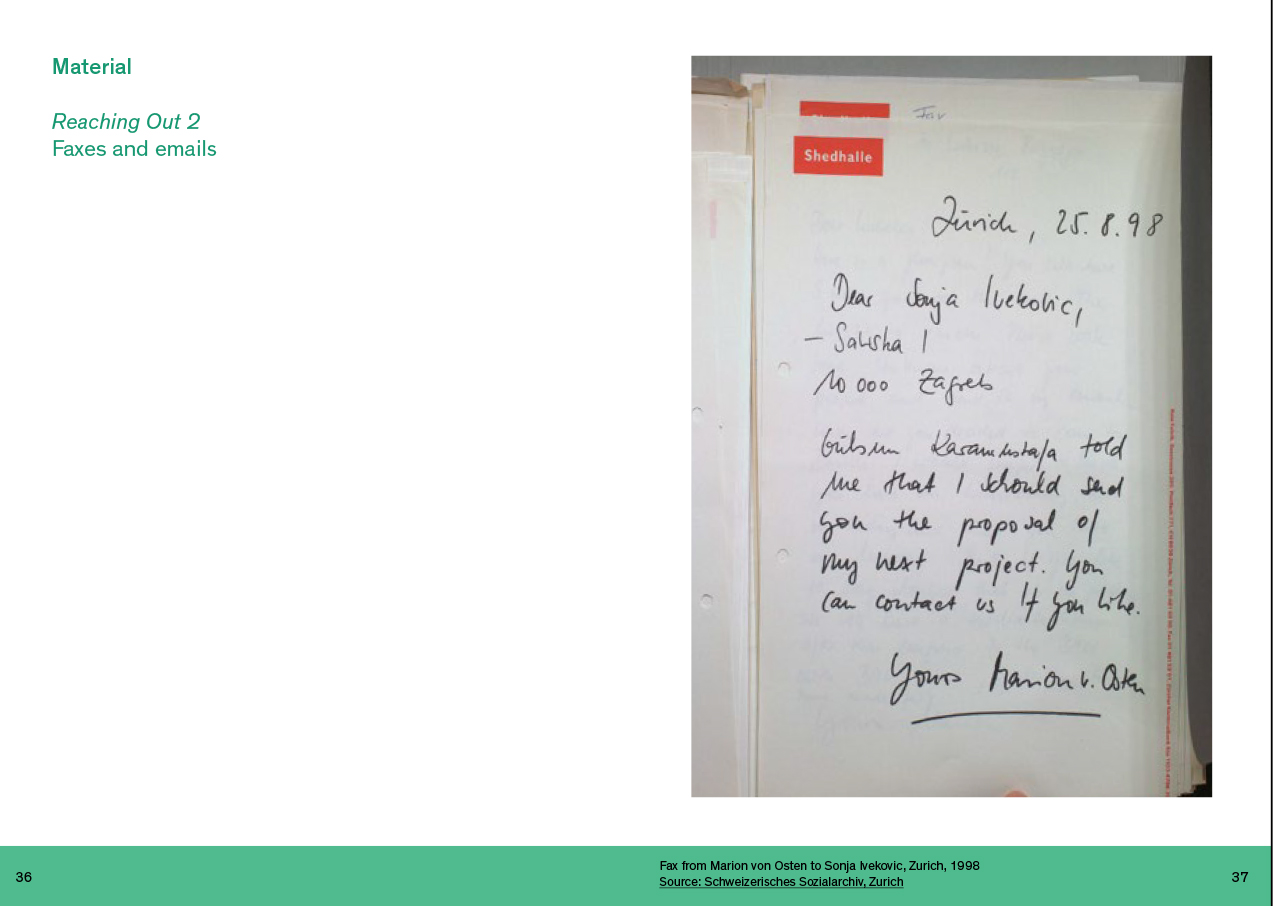 Material
Reaching Out 2
Faxes and emails
Fax
Shedhalle
Zürich, 25.8.98
Dear Sonja Ivekovic,
– Salishka 1
10 000 Zagreb
Gülsün Karamustafa told
me that I schould send
you the proposal of
my next project. You
can contact us If you like.
Yours Marion v. Osten
36
Fax from Marion von Osten to Sonja Ivekovic, Zurich, 1998
Source: Schweizerisches Sozialarchiv, Zurich
37